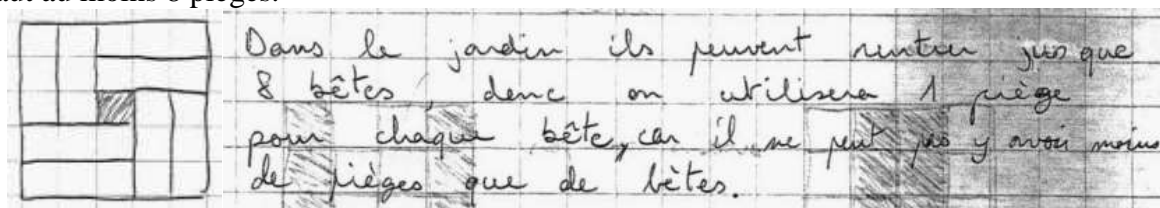 aut au moins 8 pièges.
Dans le jardin ils peuvent rentrer jusque
8 bêtes, donc on utilisera 1 piège
pour chaque bête, car il ne peut pas y avoir moins
de pièges que de bêtes.